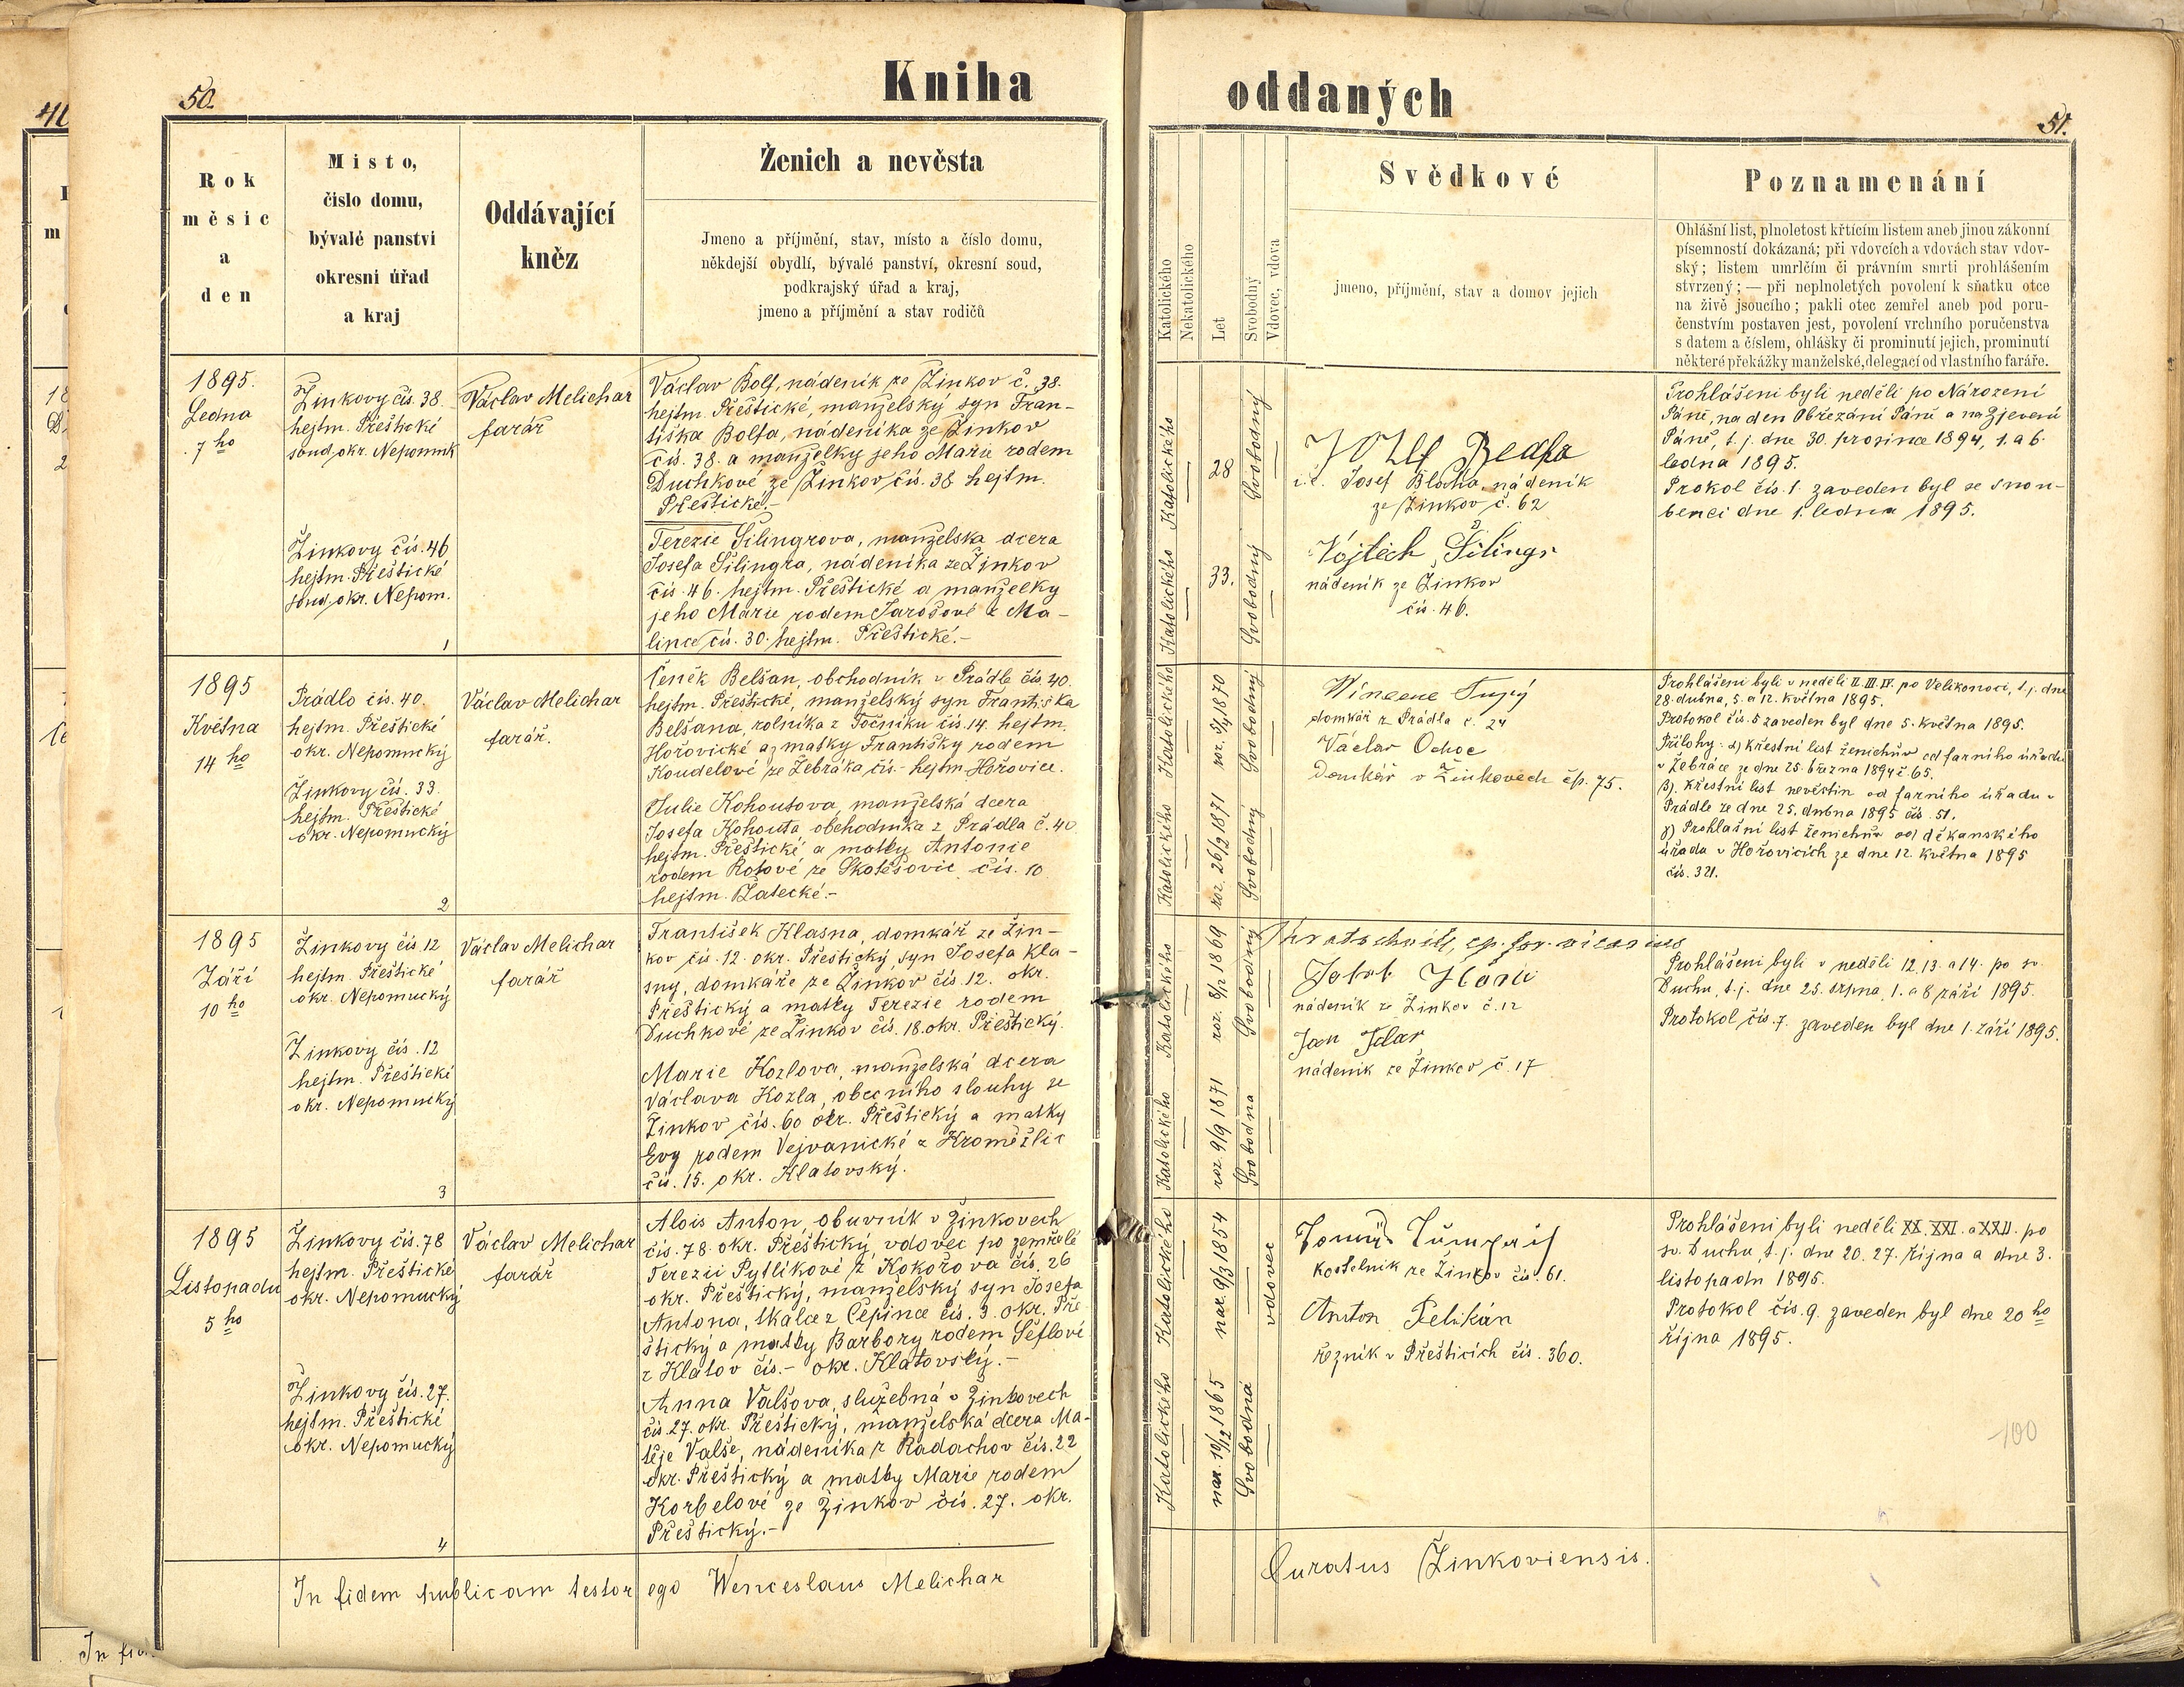 50.
Kniha
Rok
měsíc
a
den
Misto,
číslo domu,
bývalé panství
okresní úřad
a kraj
Oddávající
kněz
Ženich a nevěsta
Jmeno a příjmění, stav, místo a číslo domu,
někdejší obydlí, bývalé panství, okresní soud,
podkrajský úřad a kraj,
jmeno a příjmění a stav rodičů
1895.
Ledna
7 ho
Žinkovy čís. 38.
hejtm. Přeštické
soud. okr. Nepomuk
Václav Melichar
farář
Václav Bolf, nádeník ze Žinkov č. 38.
hejtm. Přeštické, manželský syn Fran-
tiška Bolfa, nádeníka ze Žinkov
čís. 38. a manželky jeho Marie rodem
Duchkové ze Žinkov čís. 38 hejtm.
Přeštické.-
Žinkovy čís. 46
hejtm. Přeštické
soud. okr. Nepom.
1
Terezie Šilingrova, manželska dcera
Josefa Šilingra, nádeníka ze Žinkov
čís. 46. hejtm. Přeštické a manželky
jeho Marie rodem Jarošové z Ma-
lince čís. 30. hejtm. Přeštické.-
1895
Května
14 ho
Prádlo čís. 40.
hejtm. Přeštické
okr. Nepomucký
Žinkovy čís. 33.
hejtm. Přeštické
okr. Nepomucký
2
Václav Melichar
farář.
Čeněk Belšan, obchodník v Prádle čís. 40.
hejtm. Přeštické, manželský syn Františka
Belšana, rolníka z Točníku čís. 14. hejtm.
Hořovické a z matky Františky rodem
Koudelové ze Žebráka čís.- hejtm. Hořovice.
Julie Kohoutova, manželská dcera
Josefa Kohouta obchodníka z Prádla č. 40
hejtm. Přeštické a matky Antonie
rodem Rotové ze Skotěšovic čís. 10
hejtm. Žatecké.-
1895
Září
10 ho
Žinkovy čís 12
hejtm. Přeštické
okr. Nepomucký
Žinkovy čís. 12
hejtm. Přeštické
okr. Nepomucký
3
Václav Melichar
farář
František Klasna, domkář ze Žin-
kov čís. 12. okr. Přeštický, syn Josefa Kla-
sny, domkáře ze Žinkov čís. 12. okr.
Přeštický a matky Terezie rodem
Duchkové ze Žinkov čís. 18. okr. Přeštický.
Marie Kozlova, manželská dcera
Václava Kozla, obecního slouhy ze
Žinkov čís. 60 okr. Přeštický a matky
Evy rodem Vejvanické z Kroměžlic
čís. 15. okr. Klatovský.
1895
Listopadu
5 ho
Žinkovy čís. 78
hejtm. Přeštické
okr. Nepomucký
Žinkovy čís. 27.
hejtm. Přeštické
okr. Nepomucký
4
Václav Melichar
farář
Alois Anton, obuvník v Žinkovech
čís. 78. okr. Přeštický, vdovec po zemřelé
Terezii Pytlíkové z Kokořova čís. 26
okr. Přeštický, manželský syn Josefa
Antona, tkalce z Čepince čís. 3. okr. Pře-
štický a matky Barbory rodem Šeflové
z Klatov čís.- okr. Klatovský.-
Anna Valšova, služebná v Žinkovech
čís. 27. okr. Přeštický, manželská dcera Ma-
těje Valše, nádeníka z Radochov čís. 22
okr. Přeštický a matky Marie rodem
Korbelové ze Žinkov čís. 27. okr.
Přeštický.-
In fidem publicam testor ego Wenceslaus Melichar
oddaných
51.
Katolického
Nekatolického
Let
Svobodný
Vdovec, vdova
Svědkové
jmeno, příjmění, stav a domov jejich
Poznamenání
Ohlášní list, plnoletost křtícím listem aneb jinou zákonní
písemností dokázaná; při vdovcích a vdovách stav vdov-
ský; listem umrlčím či právním smrti prohlášením
stvrzený; — při neplnoletých povolení k sňatku otce
na živě jsoucího; pakli otec zemřel aneb pod poru-
čenstvím postaven jest, povolení vrchního poručenstva
s datem a číslem, ohlášky či prominutí jejich, prominutí
některé překážky manželské, delegací od vlastního faráře.
Katolického
28
Svobodný
i.e. Josef Blaha, nádeník
ze Žinkov č. 62
Katolického
33.
Svobodný
Vojtěch Šilingr
nádeník ze Žinkov
čís. 46.
Prohlášeni byli neděli po Národzení
Páně, na den Obřezání Páně a na Zjevení
Páně, t. j. dne 30. prosince 1894, 1. a 6.
ledna 1895.
Prokol čís. 1. zaveden byl se snou-
benci dne 1. ledna 1895.
Katolického
roz. 5/4 1870
Svobodný
domkář z Prádla č. 24
Václav Ochoc
Domkář v Žinkovech čp. 75.
Katolického
roz. 26/2 1871
Svobodný
Prohlášeni byli v neděli II. III. IV. po Velikonoci, t. j. dne
28. dubna, 5. a 12. května 1895.
Protokol čís. 5 zaveden byl dne 5. května 1895.
Přílohy: α) křestní list ženichův od farního úřadu
v Žebráce ze dne 25. března 1894 č. 65.
β). křestní list nevěstin od farního úřadu v
Prádle ze dne 25. dubna 1895 čís. 51.
γ) Prohlašní list ženichův od děkanského
úřadu v Hořovicích ze dne 12. května 1895
čís. 321.
Katolického
roz. 8/12 1869
Svobodný
nádeník ze Žinkov č. 12
Jan
nádeník ze Žinkov č. 17
Katolického
roz. 9/9 1871
Svobodna
Prohlášeni byli v neděli 12. 13. a 14. po sv.
Duchu, t. j. dne 25. srpna, 1. a 8 září 1895.
Protokol čís. 7. zaveden byl dne 1. září 1895.
Katolického
nar. 9/3 1854
vdovec
kostelník ze Žinkov čís. 61.
Anton Pelikán
řezník v Přešticích čís. 360.
Katolického
nar. 10/12 1865
Svobodná
Prohlášeni byli neděli XX. XXI. a XXII. po
sv. Duchu, t. j. dne 20. 27. října a dne 3.
listopadu 1895.
Protokol čís. 9. zaveden byl dne 20 ho
října 1895.
100
Curatus Žinkoviensis.